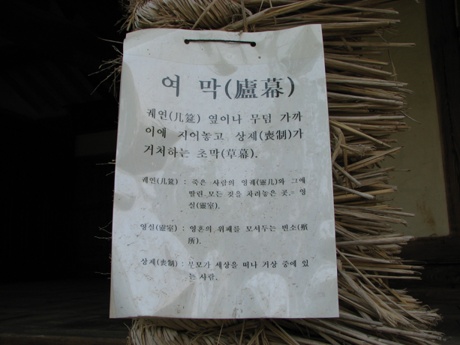 여 막(廬幕)
궤연(几筵) 옆이나 무덤 가까
이에 지어놓고 상제(喪制)가
거처하는 초막(草幕).
궤연(几筵) : 죽은 사람의 영궤(靈几)와 그에
딸린 모든 것을 차려놓은 곳.
실(靈室).
영실(靈室) : 영혼의 위패를 모셔두는
所).
상제(喪制) : 부모가 세상을 떠나 거상 중에 있
는 사람.